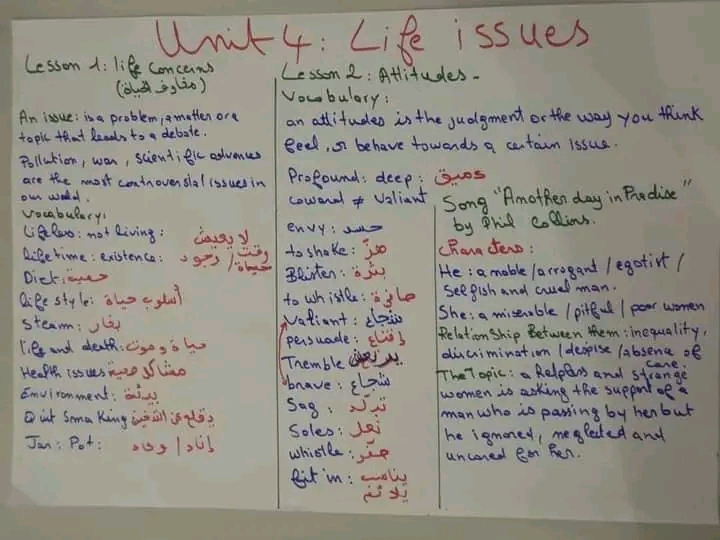 Unit 4: Life issues
Lesson 1: life concerns
An issue: is a problem, a matter or a
topic that leads to a debate.
Pollution, war, scientific advances
are the most controversial issues in
our world.
Vocabulary:
lifeless: not living: لا يعيش
life time: existence: وقت / وجود
حياة
Diet: حمية
life style: أسلوب حياة
Steam: بخار
life and death: حياة وموت
Health issues مشاكل صحية
Environment: بيئة
Quit Smoking يقلع عن التدخين
Jar: Pot: إناء / وعاء
Lesson 2: Attitudes -
Vocabulary:
an attitudes is the judgment or the way you think
feel, or behave towards a certain issue.
Profound: deep: عميق
coward ≠ Valiant
envy: حسد
to shake: هزّ
Blister: بثرة
to whistle:
Valiant: شجاع
persuade: إقناع
Tremble
brave: شجاع
Sag:
Soles: نعل
whistle: صفّر
fit in: يناسب
يلائم
Song "Another day in Pradise"
by Phil Collins.
Characters:
He: a noble / arrogant / egotist /
Selfish and cruel man.
She: a miserable / pitful / poor women
RelationShip Between them: inequality,
discrimination / despise / absence of
care.
The Topic: a helpless and strange
women is asking the support of a
man who is passing by her but
he ignored, neglected and
uncared for her.